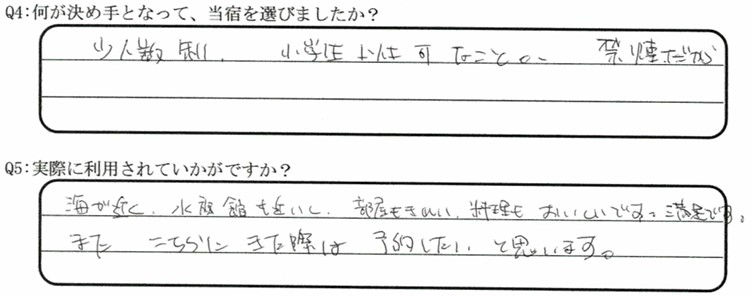 Q4:何が決め手となって、当宿を選びましたか？
少人数制、小学生以上可なこと。、禁煙だから
Q5:実際に利用されていかがですか？
海が近く、水族館も近いし、部屋もきれい、料理もおいしいです。満足です。
また こちらに きた際は 予約したい と思います。